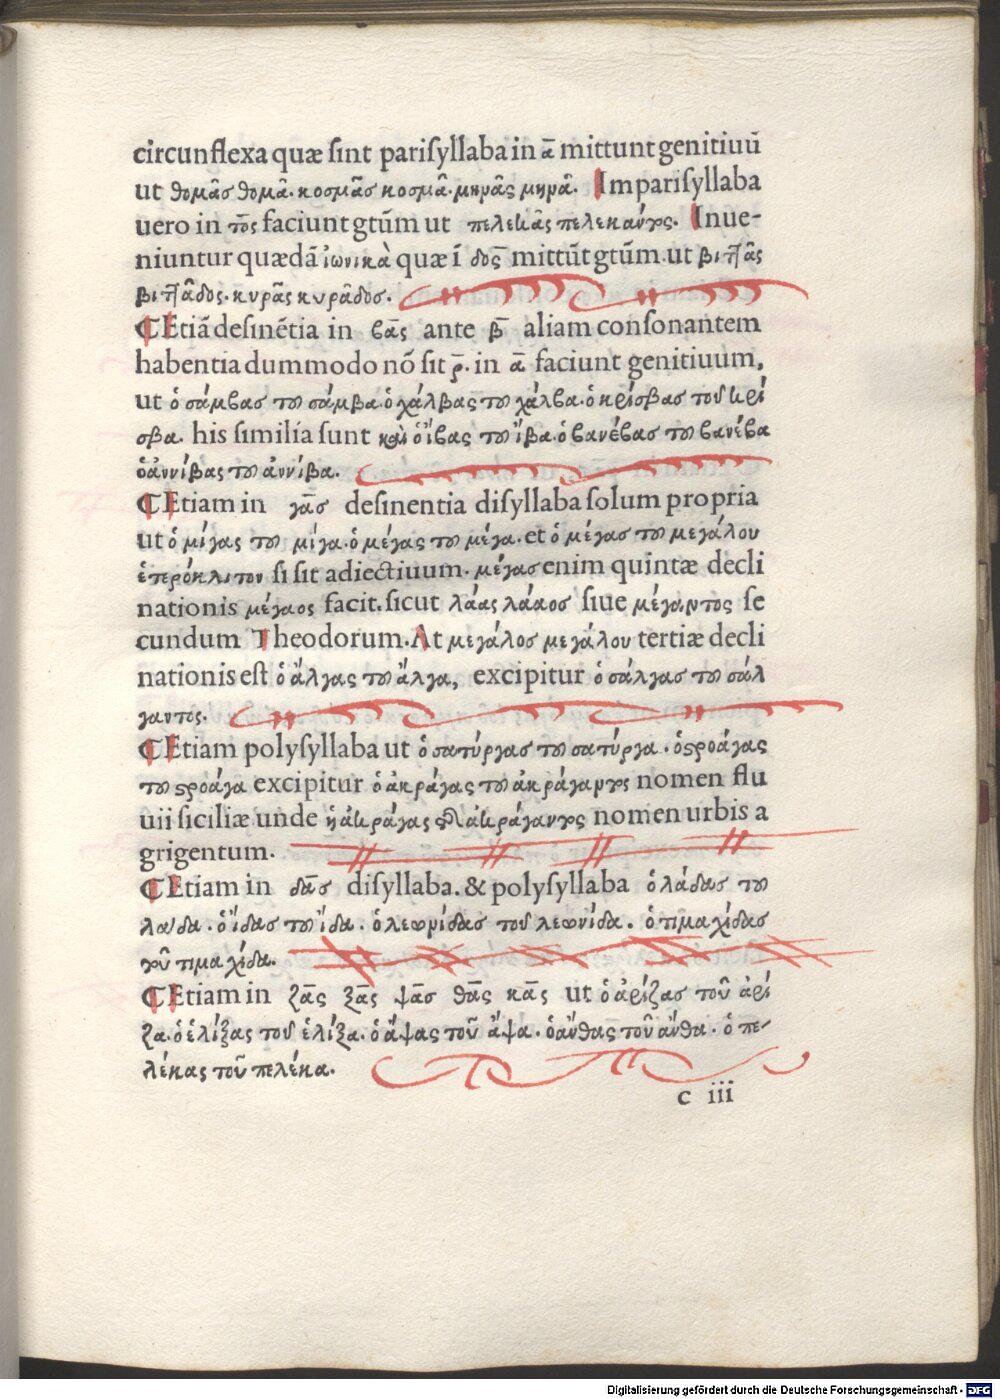 circunflexa quæ ſint pariſyllaba in α̅ mittunt genitiuū
ut θομᾶσ θομᾶ. κοσμᾶσ κοσμᾶ. μηνᾶς μηνᾶ. Impariſyllaba
uero in τος faciunt gtūm ut πελεκᾶς πελεκαύτος. Inue-
niuntur quædā ἰωνικὰ quæ ī δος mittūt gtūm ut
κυρᾶς κυρᾶδοσ.
¶Etiā deſinētia in βας ante β̅ aliam conſonantem
habentia dummodo nō ſit ρ̅. in α̅ faciunt genitiuum,
ut ὁ σάμβασ του σάμβα. ὁ χάλβας του χάλβα. ὁ κρίσβας τοῦ κρί
σβα. his ſimilia ſunt καὶ ὁ ἴβας του ἴβα. ὁ βανέβασ του βανέβα
ὁ ἀννίβας του ἀννίβα.
¶Etiam in γασ deſinentia diſyllaba ſolum propria
ut ὁ μίγας του μίγα. ὁ μέγας του μέγα. et ὁ μέγασ του μεγάλου
ἑτερόκλιτον ſi ſit adiectiuum. μέγασ enim quintæ decli
nationis μέγαος facit. ſicut λάας λάαοσ ſiue μέγαντος ſe
cundum Theodorum. At μεγάλοσ μεγάλου tertiæ decli
nationis eſt ὁ ἄλγας του ἄλγα, excipitur ὁ σάλγασ του σάλ
γαντος.
¶Etiam polyſyllaba ut ὁ σατύργασ του σατύργα. ὁ στροάγας
του στροάγα excipitur ὁ ἀκράγας του ἀκράγαντος nomen flu
uii ſiciliæ unde ἡ ἀκράγας τῆς ἀκράγαντος nomen urbis a
grigentum.
¶Etiam in δασ diſyllaba. & polyſyllaba ὁ λάδασ του
λάδα. ὁ ἴδασ του ἴδα. ὁ λεωνίδασ τοῦ λεωνίδα. ὁ τιμαχίδασ
τοῦ τιμαχίδα.
¶Etiam in ζας ξας ψασ θας κας ut ὁ ἀρίζασ τοῦ ἀρί
ζα. ὁ ἑλίξας τοῦ ἑλίξα. ὁ ἄψας τοῦ ἄψα. ὁ ἄνθας τοῦ ἄνθα. ὁ πε-
λέκας τοῦ πελέκα.
c iii
Digitalisierung gefördert durch die Deutsche Forschungsgemeinschaft - DFG